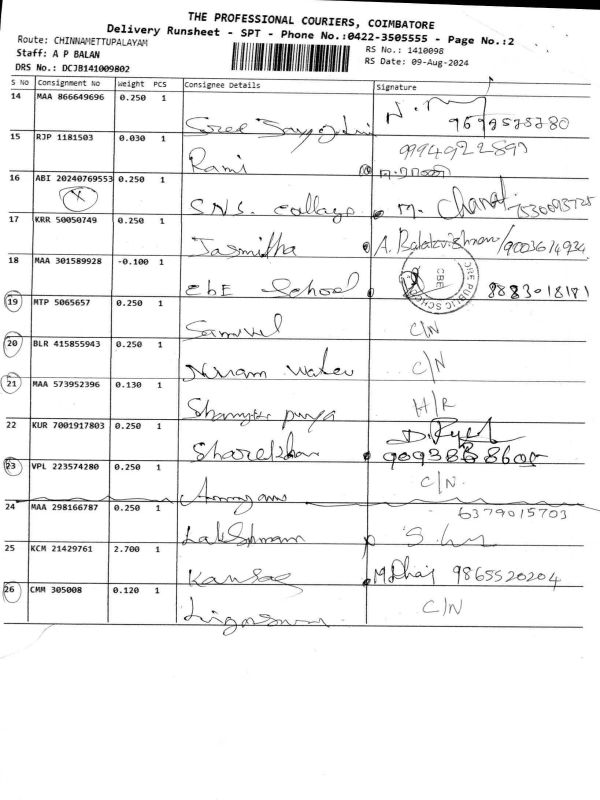 THE PROFESSIONAL COURIERS, COIMBATORE
Delivery Runsheet - SPT - Phone No.:0422-3505555 - Page No.:2
Route: CHINNAMETTUPALAYAM
Staff: A P BALAN
RS No.: 1410098
DRS No.: DCJB141009802
RS Date: 09-Aug-2024
S No Consignment No Weight PCS Consignee Details Signature
14 MAA 866649696 0.250 1
Sree
15 RJP 1181503 0.030 1 9994922897
Rami
16 ABI 20240769553 0.250 1
X S.N.S. college M.
17 KRR 50050749 0.250 1
Jasmitha A. Balakrishnan /9003614934
18 MAA 301589928 -0.100 1
CBE School CBE PUBLIC SCHOOL CBE 8883018181
19 MTP 5065657 0.250 1
Samuvel C/N
20 BLR 415855943 0.250 1
Niram water C/N
21 MAA 573952396 0.130 1
priya H/R
22 KUR 7001917803 0.250 1
Sharekhan
23 VPL 223574280 0.250 1 C/N.
24 MAA 298166787 0.250 1 6379015703
Lakshmanan
25 KCM 21429761 2.700 1
M.Dhaj 9865520204
26 CMM 305008 0.120 1 C/N